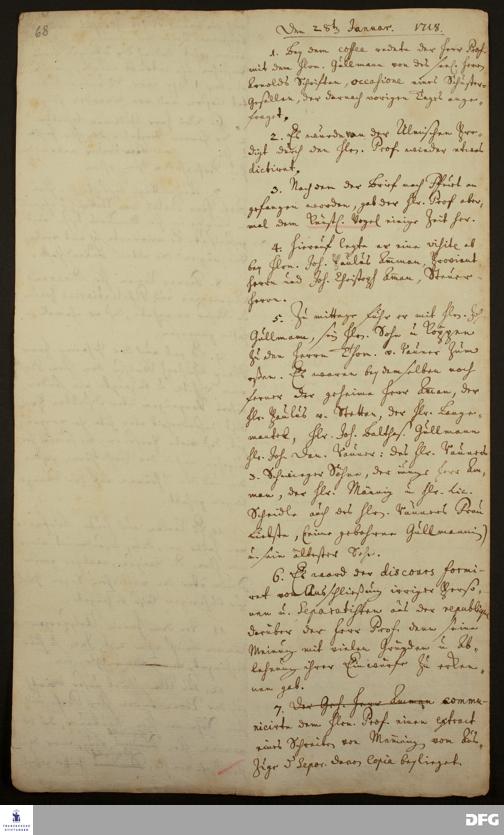 68
Den 28ten Januar. 1718.
1. Bey dem coffee redete der Herr Prof.
mit dem Hrn. Gullmann von des seel. Herrn
Arnolds Schriften, occasione eines Schuster-
Gesellen, der darnach vorigen Tages ange-
fraget.
2. Es wurde von der Ulmischen Pre-
digt durch den Hrn. Prof. wieder etwas
dictiret.
3. Nachdem der Brief nach
gefangen worden, gab der Hr. Prof. aber-
mal dem Vogel einige Zeit her.
4. Hierauf legte er eine visite ab
bey Hrn. Joh. Paulus Amman, Proviant
Herrn und Joh. Christoph Aman, Steuer-
Herrn.
5. Zu mittage fuhr er mit Hrn.
Gullmann, Hrn. Sohn u.
zu dem Herrn Thom. v. Rauner zum
eßen. Es waren bey demselben noch
ferner der geheime Herr Aman, der
Hr. Paulus v. Stetten, der Hr. Lange-
mantel, Hr. Joh. Balthas. Gullmann
Hr. Joh. Dan. Rauner: des Hr. Rauners
3. Schwieger Söhne, der junge Herr Am-
man, der Hr. Männig u. Hr. Lic.
Scheidle auch des Hrn. Rauners Frau
Liebste, (eine gebohrne Gullmannin)
u. sein ältester Sohn.
6. Es ward der discours formi-
ret von Ausschließung irriger Perso-
nen u. Separatisten aus der republique
darüber der Herr Prof. denn seine
Meinung mit vielen Gründen u. Ab-
lehnung ihrer Einwürfe zu erken-
nen gab.
7. Der Geh. Herr Amman commu-
nicirte dem Hrn. Prof. einen extract
eines Schreiben von Memming. von
Separ. davon Copia beylieget.
FRANCKESCHE
STIFTUNGEN
DFG